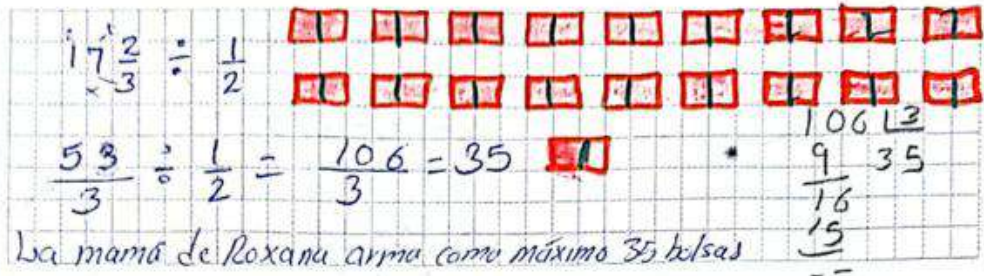 17 2/3 ÷ 1/2
53/3 ÷ 1/2 = 106/3 = 35
106 | 3
9 35
16
15
La mamá de Roxana arma como máximo 35 bolsas